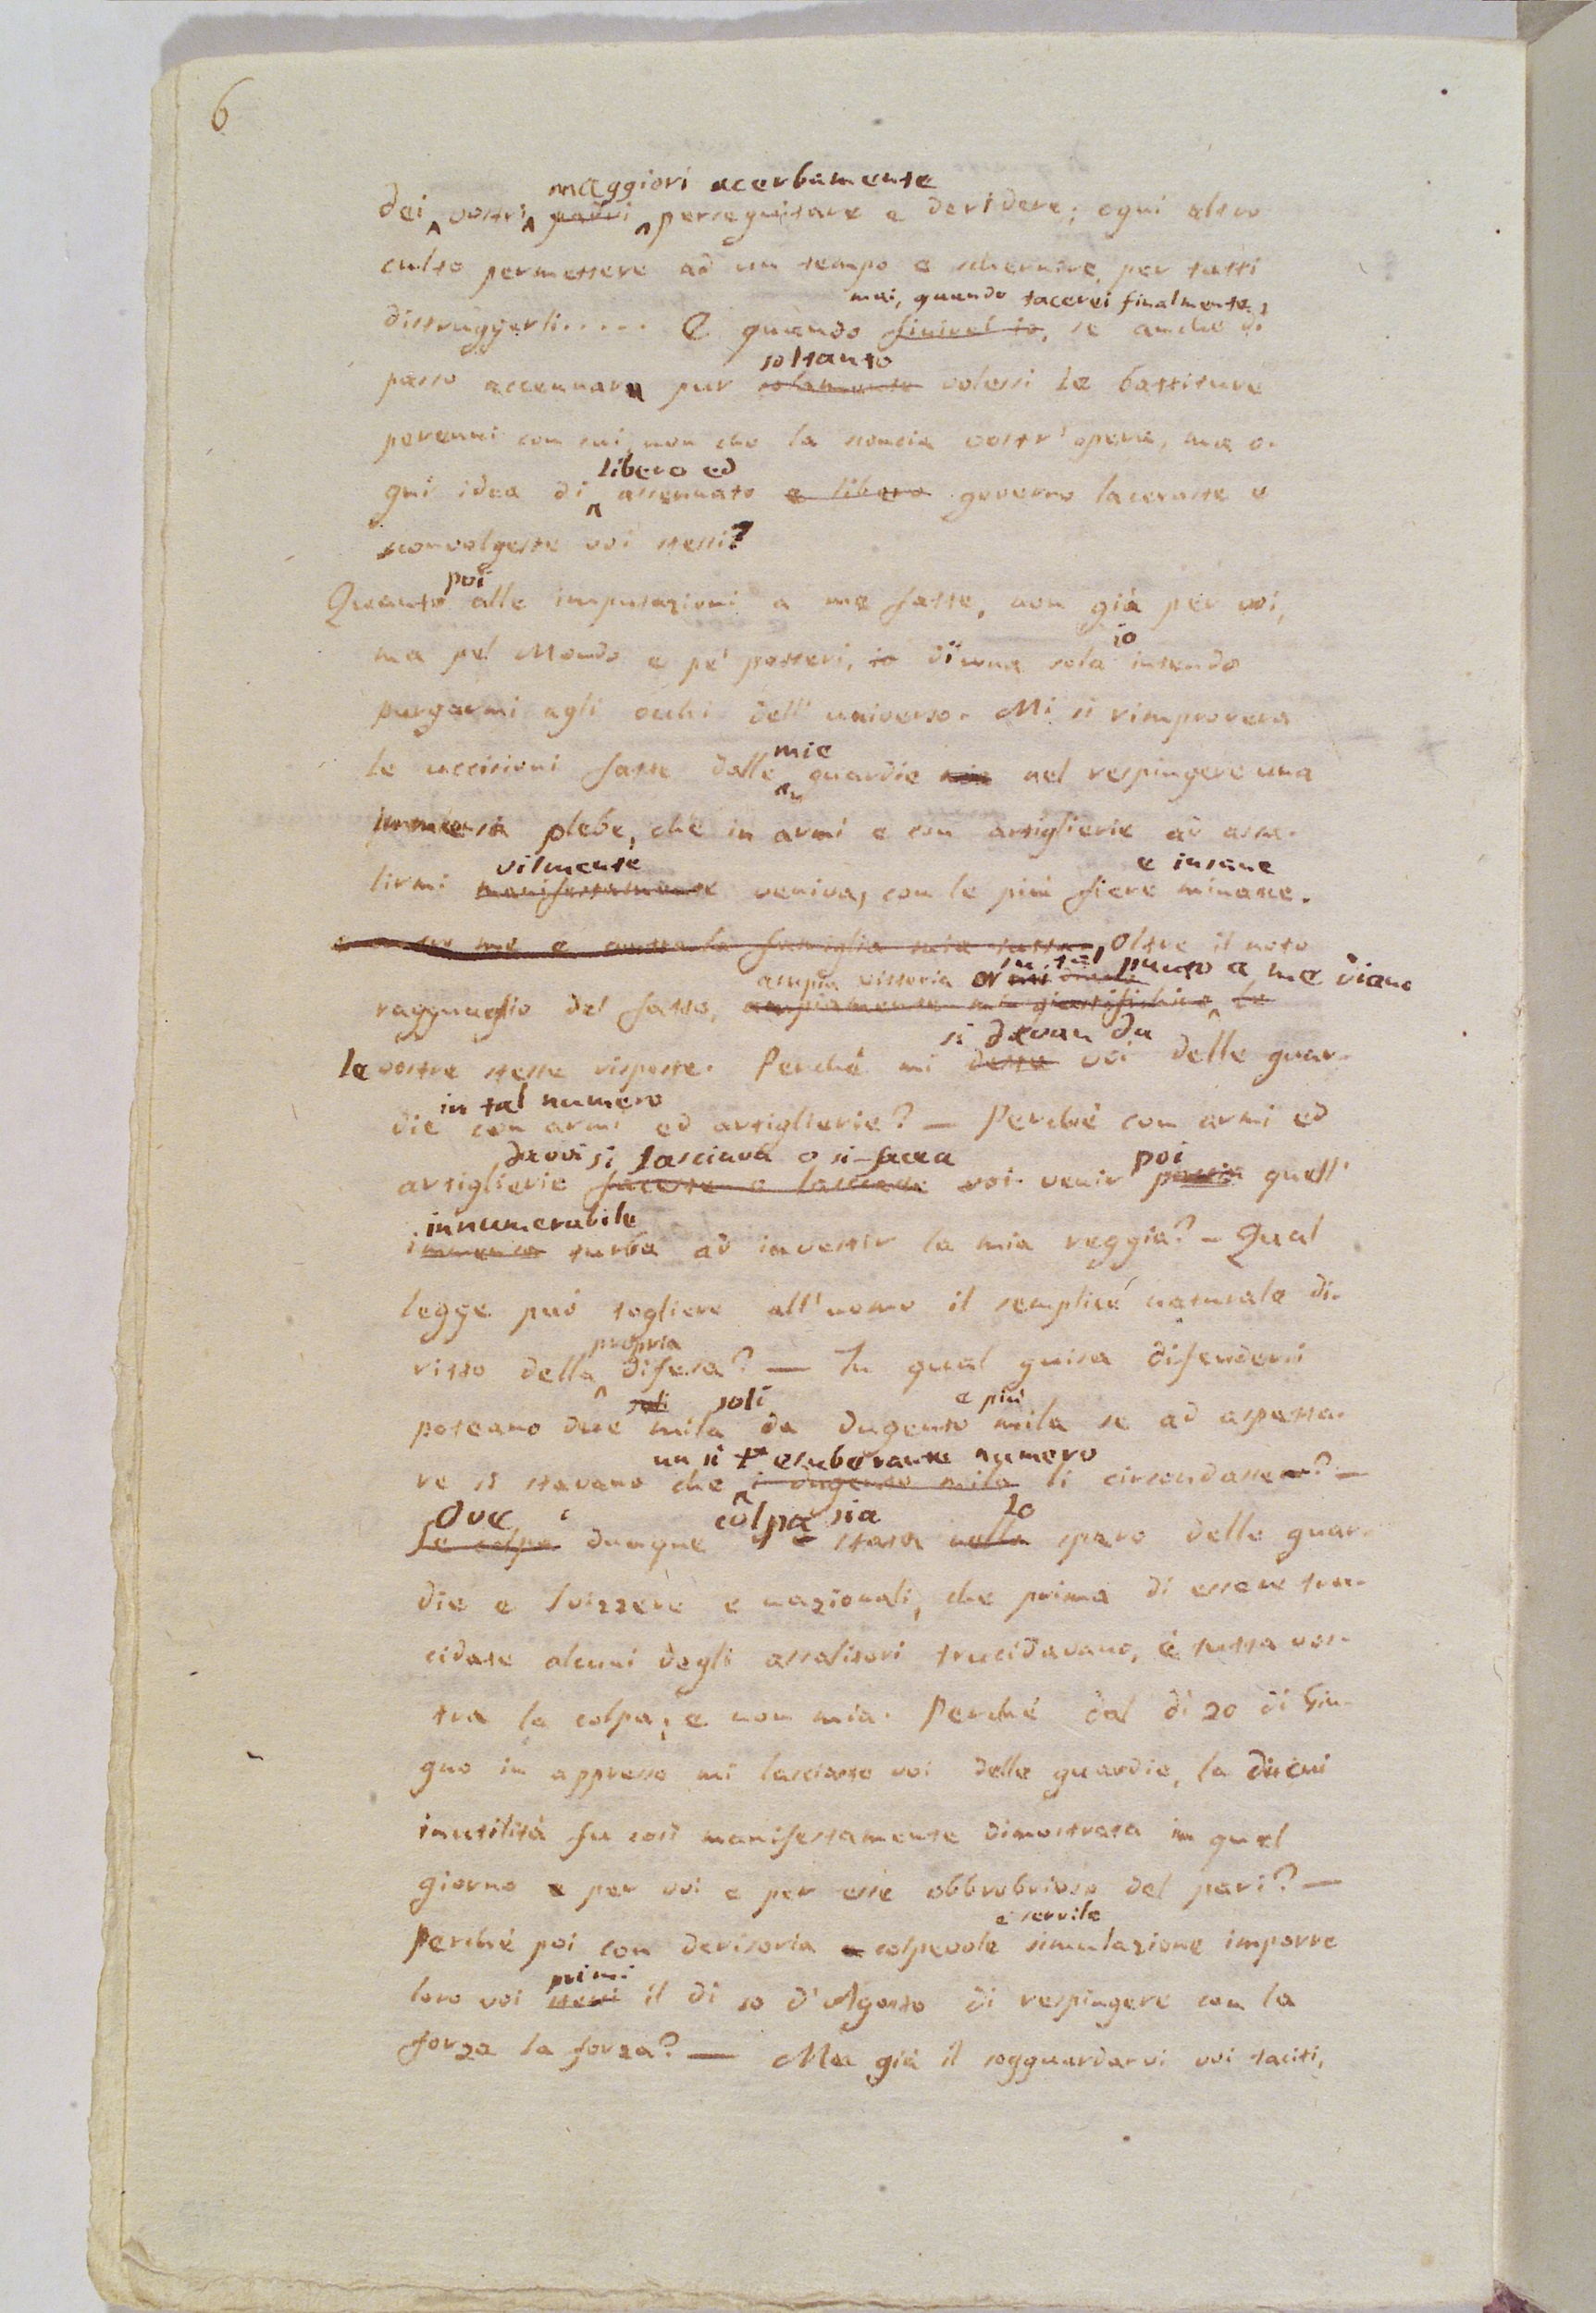 6
maggiori acerbamente
dei vostri padri perseguitare e deridere; ogni altro
culto permettere ad un tempo e schernire, per tutti
mai, quando tacerei finalmente,
distruggerli..... E quando finirei io, se anche di
soltanto
passo accennare pur solamente volessi le battiture
perenni con cui, non che la sconcia vostr'opera, ma o-
libero ed
gni idea di assennato e libero governo laceraste e
sconvolgeste voi stessi?
poi
Quanto alle imputazioni a me fatte, non già per voi,
io
ma pel Mondo e pe' posteri, io di una sola intendo
purgarmi agli occhi dell'universo. Mi si rimprovera
mie
le uccisioni fatte dalle guardie mie nel respingere una
immensa plebe, che in armi e con artiglierie ad assa-
vilmente e insane
lirmi manifestamente veniva, con le più fiere minacce.
me e tutta la famiglia mia tutta, Oltre il noto
ampia vittoria or in tal punto a me diano
ragguaglio del fatto, ampiamente mi giustifichino le
si davan da
le vostre stesse risposte. Perché mi deste voi delle guar-
in tal numero
die con armi ed artiglierie? — Perché con armi ed
da voi si lasciava o si facea poi
artiglierie faceste o lasciaste voi venir quell'
innumerabile
immensa turba ad investir la mia reggia? — Qual
legge può togliere all'uomo il semplice naturale di-
propria
ritto della difesa? — In qual guisa difendersi
soli soli e più
poteano due mila da dugento mila se ad aspetta-
un sì esuberante numero
re si stavano che i dugento mila li circondasse? —
Ove colpa sia lo
Se colpa dunque è stata nello sparo delle guar-
die e Svizzere e nazionali, che prima di essere tru-
cidate alcuni degli assalitori trucidavano, è tutta vos-
tra la colpa, e non mia. Perché dal dì 20 di Giu-
gno in appresso mi lasciaste voi delle guardie, la di cui
inutilità fu così manifestamente dimostrata in quel
giorno e per voi e per esse obbrobrioso del pari? —
e servile
Perché poi con derisoria e colpevole simulazione imporre
primi
loro voi stessi il dì 10 d'Agosto di respingere con la
forza la forza? — Ma già il sogguardarvi voi taciti,